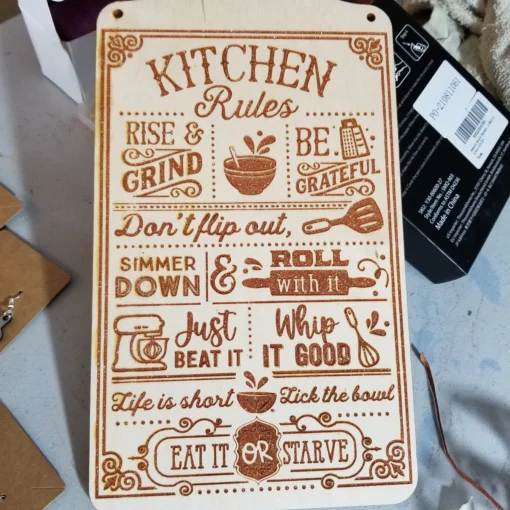 KITCHEN
Rules
RISE &
GRIND
BE
GRATEFUL
Don't flip out,
SIMMER
DOWN
&
ROLL
with it
Just
BEAT IT
Whip
IT GOOD
Life is short
Lick the bowl
EAT IT OR STARVE
PO-210811081
Made in China